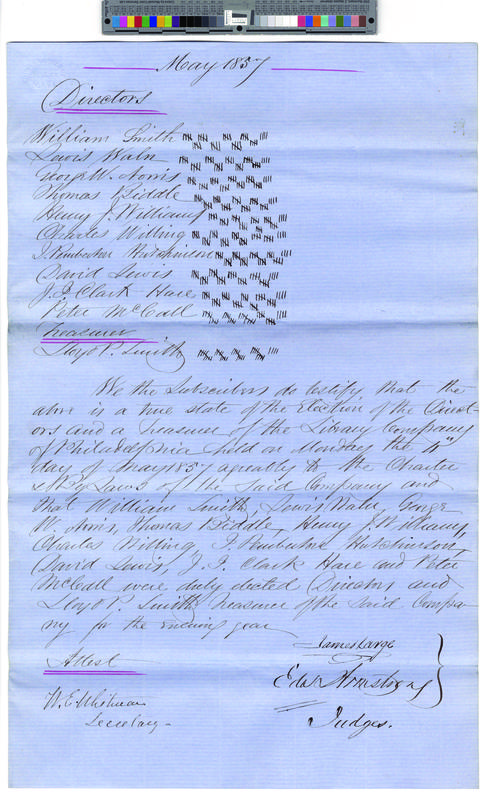 May 1857
Directors
William Smith
Lewis Waln
George W. Norris
Thomas Biddle
Henry J. Williams
Charles Willing
I. Pemberton Hutchinson
David Lewis
J. I. Clark Hare
Peter McCall
Treasurer
Lloyd P. Smith
We the Subscribers do testify that the
above is a true state of the Election of the Direct-
ors and a Treasurer of the Library Company
of Philadelphia held on Monday the 4"
day of May 1857 agreably to the Charter
& By Laws of the Said Company and
that William Smith, Lewis Waln, George
W. Norris, Thomas Biddle, Henry J. Williams,
Charles Willing, I. Pemberton Hutchinson,
David Lewis, J. I. Clark Hare and Peter
McCall were duly elected Directors and
Lloyd P. Smith Treasurer of the Said Compa-
ny for the ensuing year
James Large
Attest
Edw Armstrong
W. E. Whitman
Secretary
Judges.